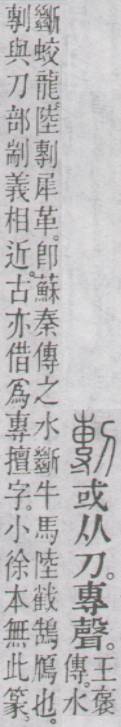 剸或从刀。專聲。王褒
傳。水
斷蛟龍。陸剸犀革。卽蘇秦傳之水斷牛馬。陸截鵠鴈也。
剸與刀部剬義相近。古亦借爲專擅字。小徐本無此篆。